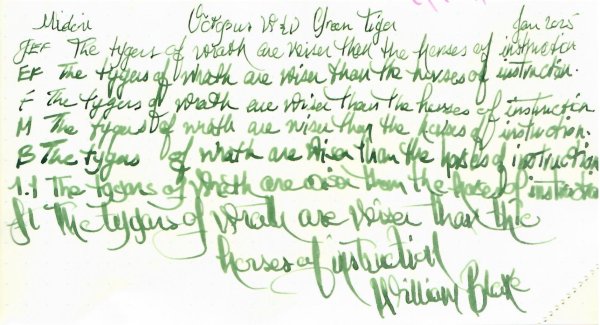 Midori Octopus W&W Green Tiger Jan 2025
JEF The tygers of wrath are wiser than the horses of instruction
EF The tygers of wrath are wiser than the horses of instruction.
F The tygers of wrath are wiser than the horses of instruction
M The tygers of wrath are wiser than the horses of instruction.
B The tygers of wrath are wiser than the horses of instruction
1.1 The tygers of wrath are wiser than the horses of instruction
fl The tygers of wrath are wiser than the
horses of instruction
William Blake